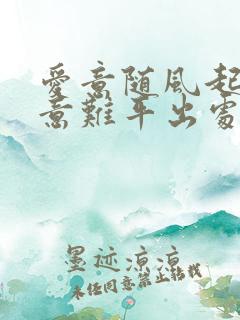 愛意随風起
意難平出處
墨迹凉凉
未经同意禁止转载